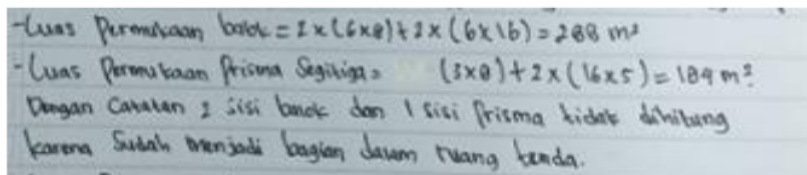 -Luas Permukaan balok = 2 x (6x8) + 2 x (6x16) = 288 m²
-Luas Permukaan Prisma Segitiga = (3x8) + 2 x (16x5) = 184 m².
Dengan Catatan 2 sisi balok dan 1 sisi Prisma tidak dihitung
karena Sudah menjadi bagian dalam ruang tenda.